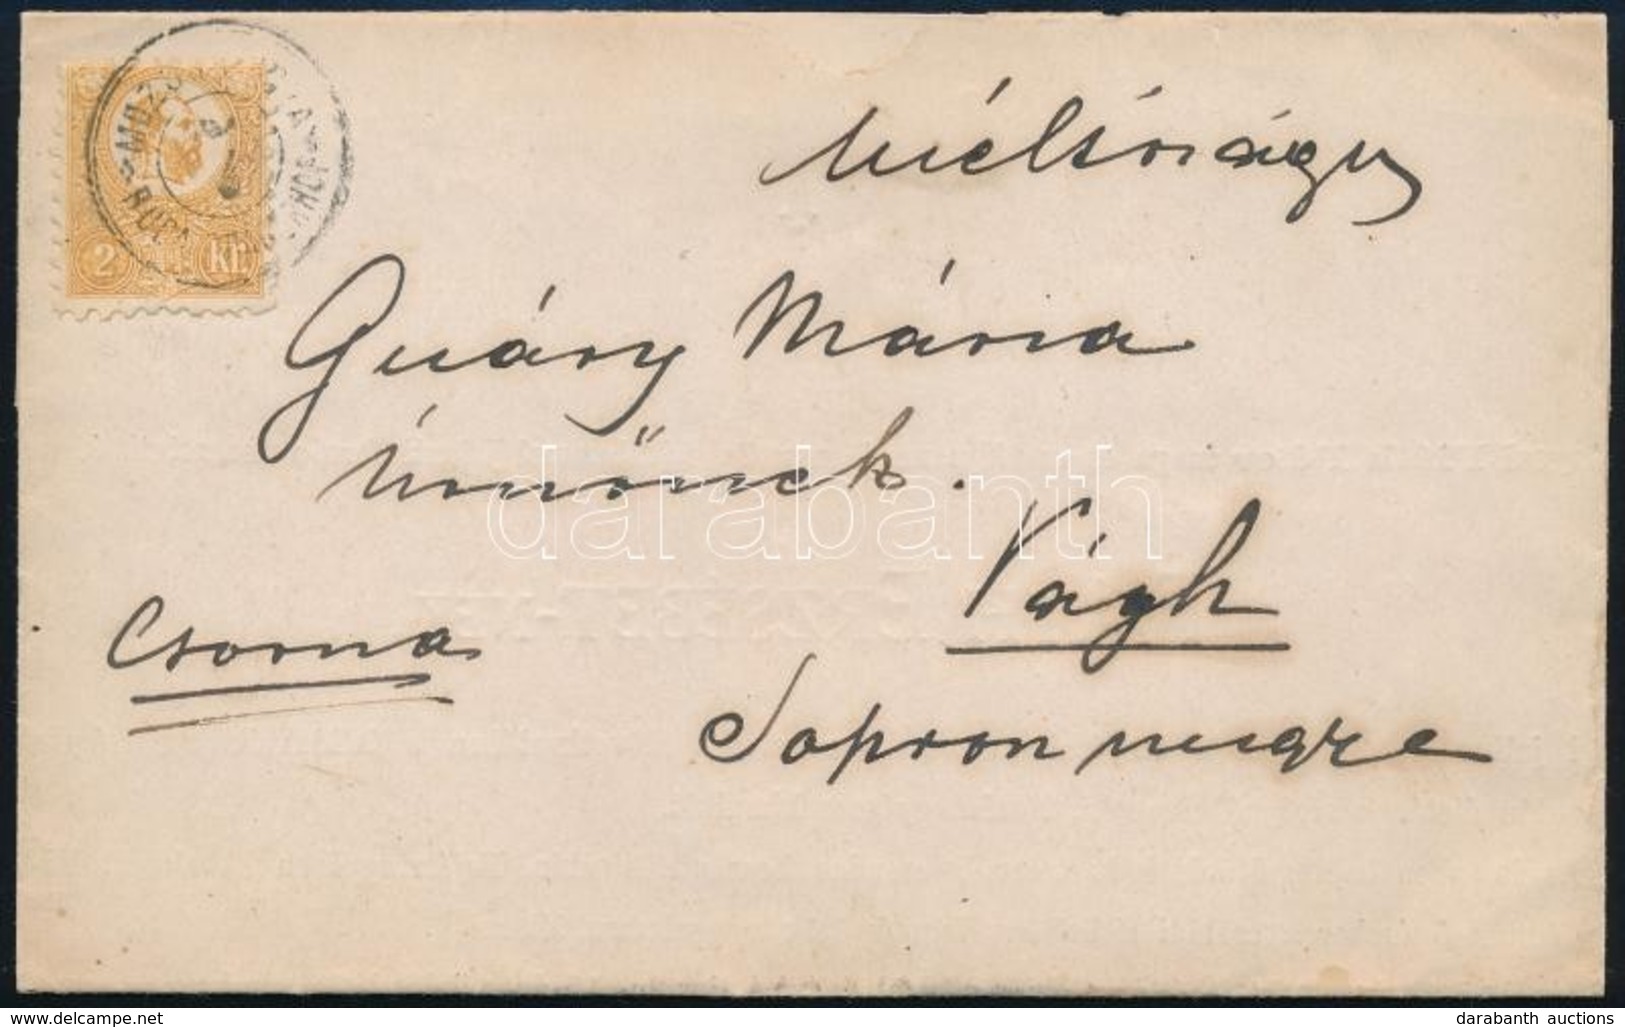 Méltóságu
Guáry Mária
Úrnőnek.
Vágh
Csorna
Sopron megye
2 Kr.
darabanth
www.delcampe.net
darabanth auctions